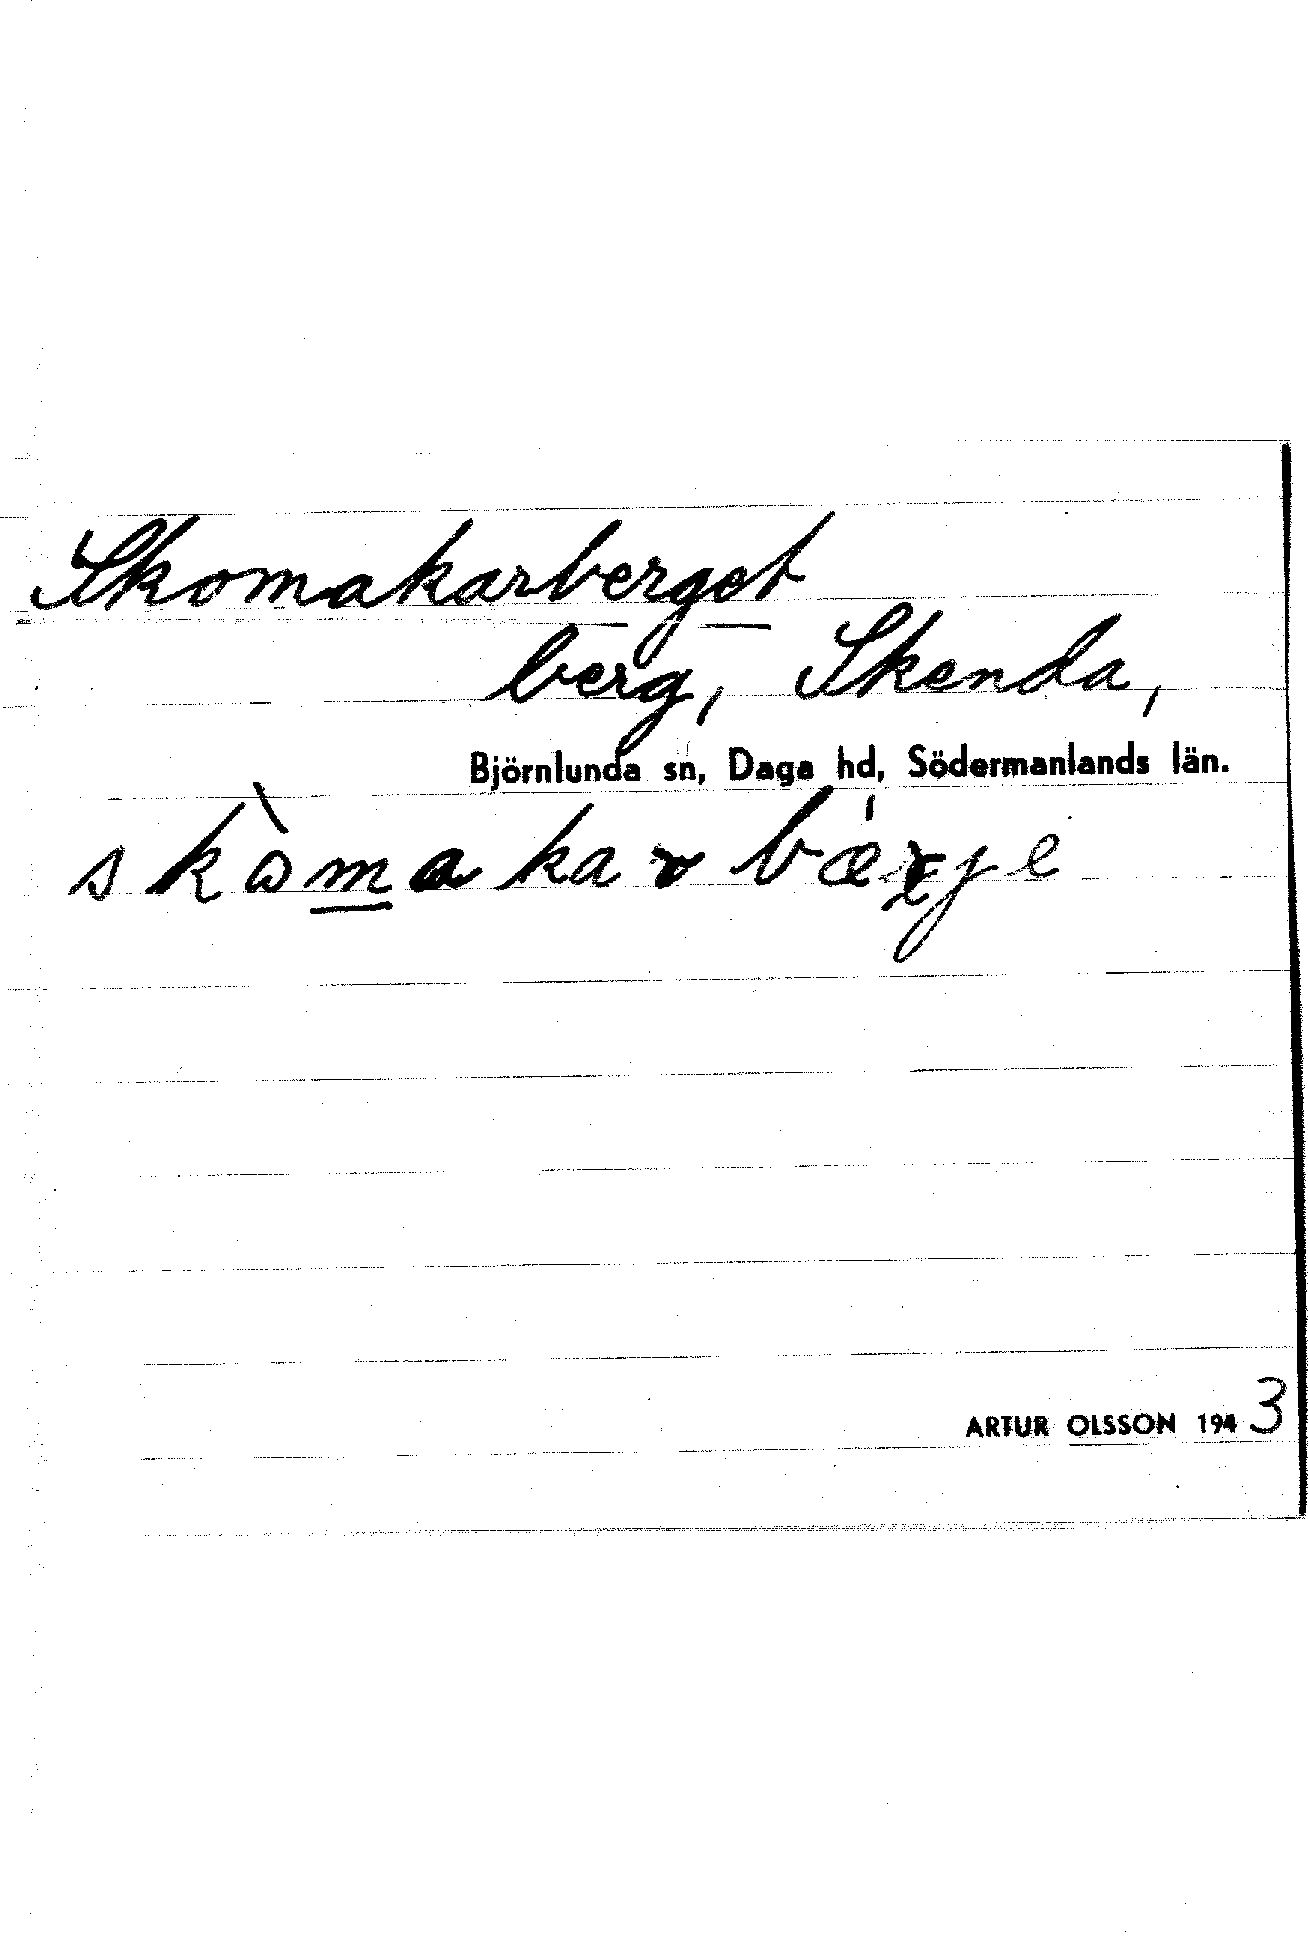 Skomakarberget
berg, Skenda,
Björnlunda sn, Daga hd, Södermanlands län.
skòmakar bærje
ARTUR OLSSON 1943